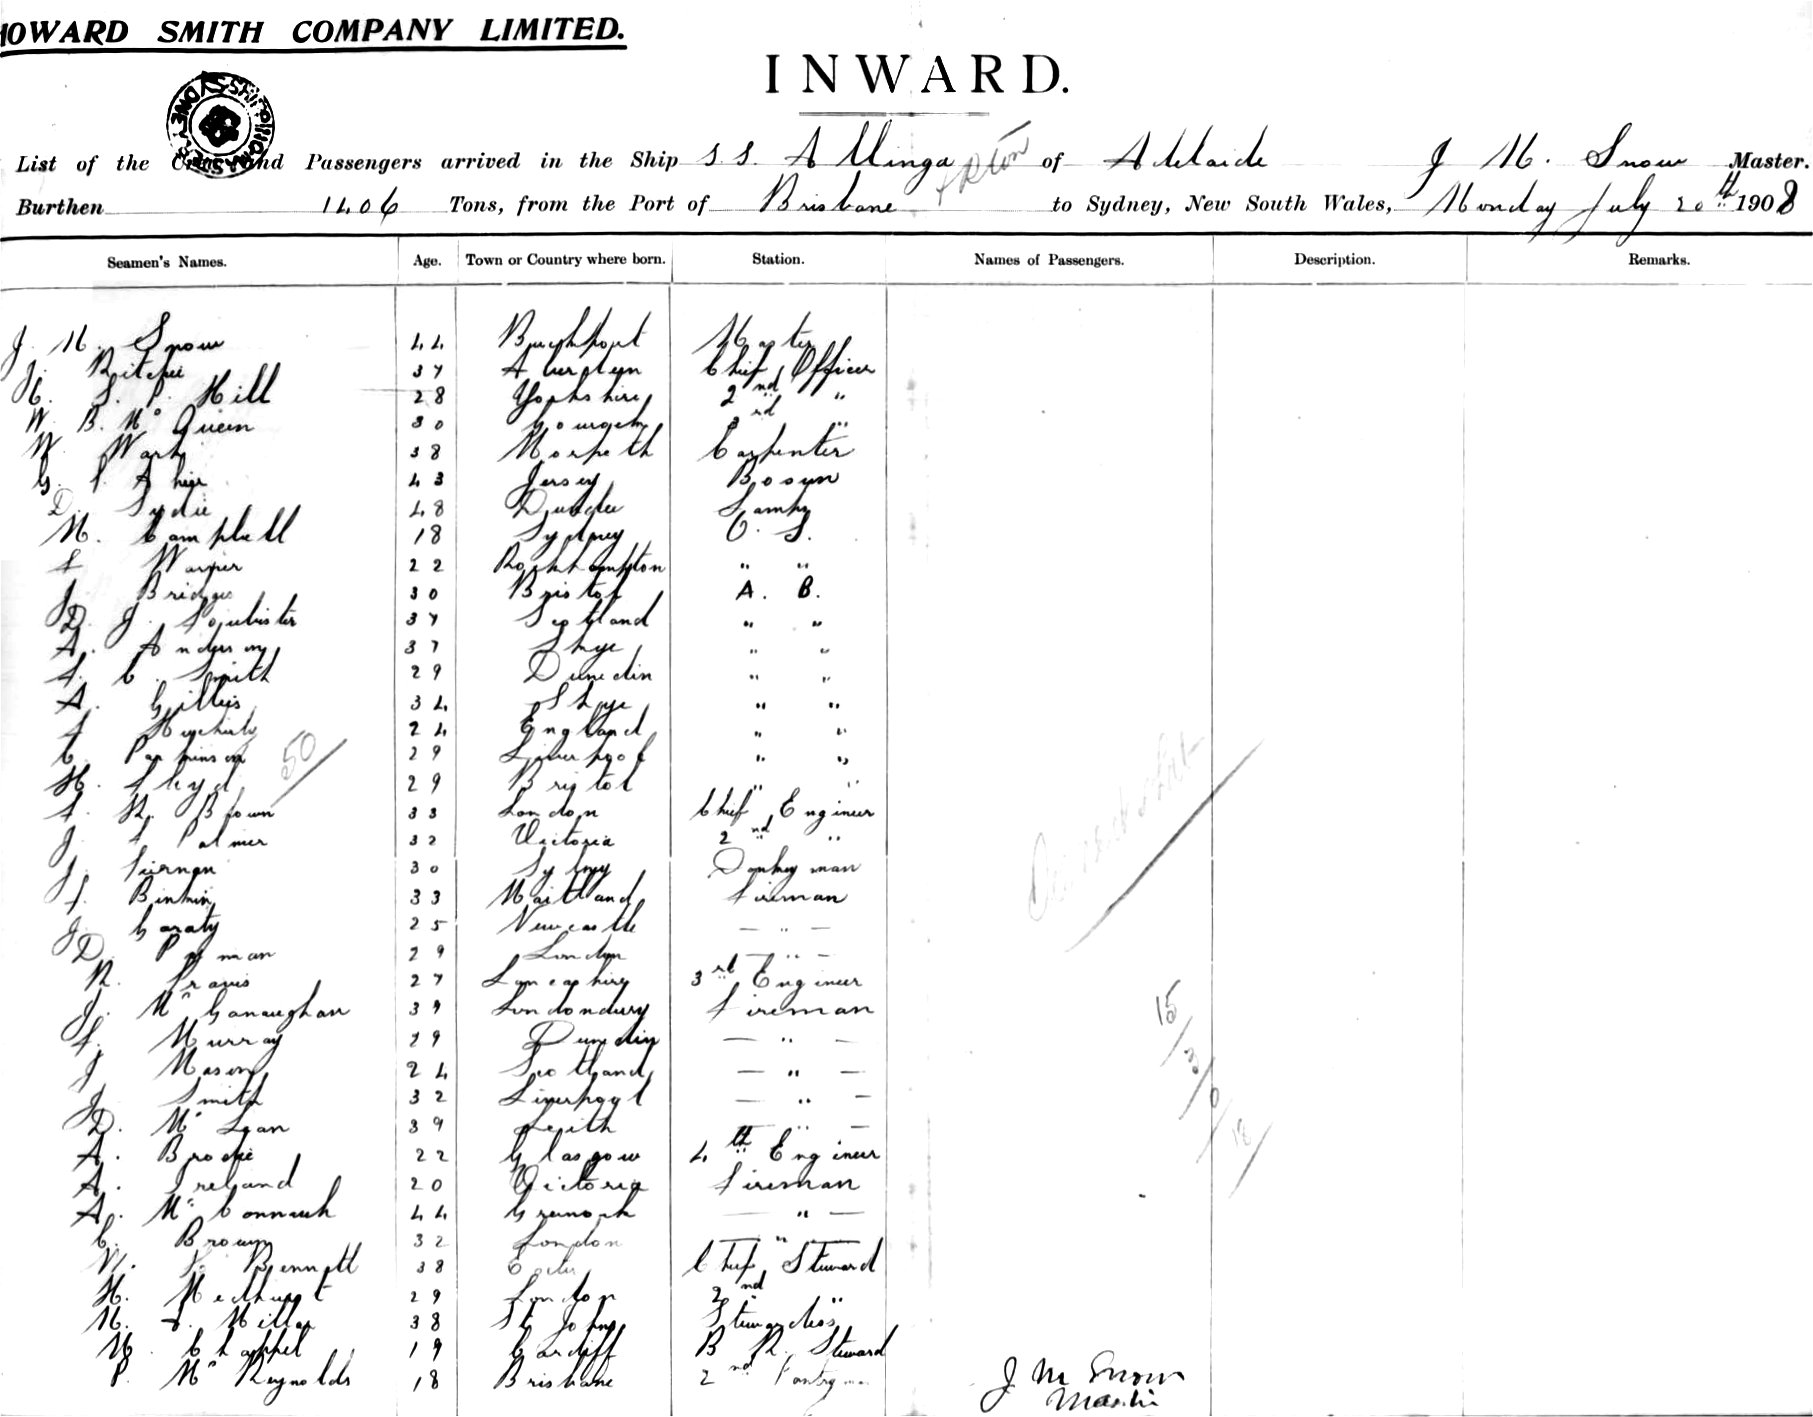 HOWARD SMITH COMPANY LIMITED.
INWARD.
List of the Crew and Passengers arrived in the Ship S.S. Allinga of Adelaide J M. Snow Master.
Burthen 1406 Tons, from the Port of Brisbane to Sydney, New South Wales, Monday July 20th 1908
Seamen's Names. Age. Town or Country where born. Station. Names of Passengers. Description. Remarks.
J. M. Snow 44 Master
J. Ritchie 37 Chief Officer
H. S. P. Hill 28 Yorkshire 2nd "
W. B. Mc Queen 30 3rd "
W. 38 Morpeth Carpenter
G. 43 Jersey Bosun
D. 48 Dundee Lamps
M. Campbell 18 Sydney O. S.
22 Rockhampton " "
J. Bridges 30 Bristol A. B.
D. J. 37 Scotland " "
A. Anderson 37 Skye " "
F. C. Smith 29 Dunedin " "
A. Gillies 34 Skye " "
24 England " "
C. Parkinson 29 Liverpool " "
50
H. 29 Bristol " "
F. R. Brown 33 London Chief Engineer
J. F. Palmer 32 Victoria 2nd "
J. 30 Sydney Donkeyman
33 Maitland Fireman
J. Garaty 25 Newcastle — " —
D. 29 London — " —
R. Travis 27 Lancashire 3rd Engineer
J. Mc Ganaughan 39 Londonderry Fireman
F. Murray 29 Dunedin — " —
J Mason 24 Scotland — " —
J. Smith 32 Liverpool — " —
D. Mc Lean 39 Leith — " —
A. Brodie 22 Glasgow 4th Engineer
A. Ireland 20 Victoria Fireman
A. Mc Connach 44 Greenock — " —
C. Brown 32 London — " —
W. Bennett 38 Chief Steward
H. Medhurst 29 London 2nd "
M. Miller 38 St Johns Stewardess
M. Chappel 19 Cardiff B R. Steward
P. Mc Reynolds 18 Brisbane 2nd Pantryman
15/3/0/18
J M Snow
Master